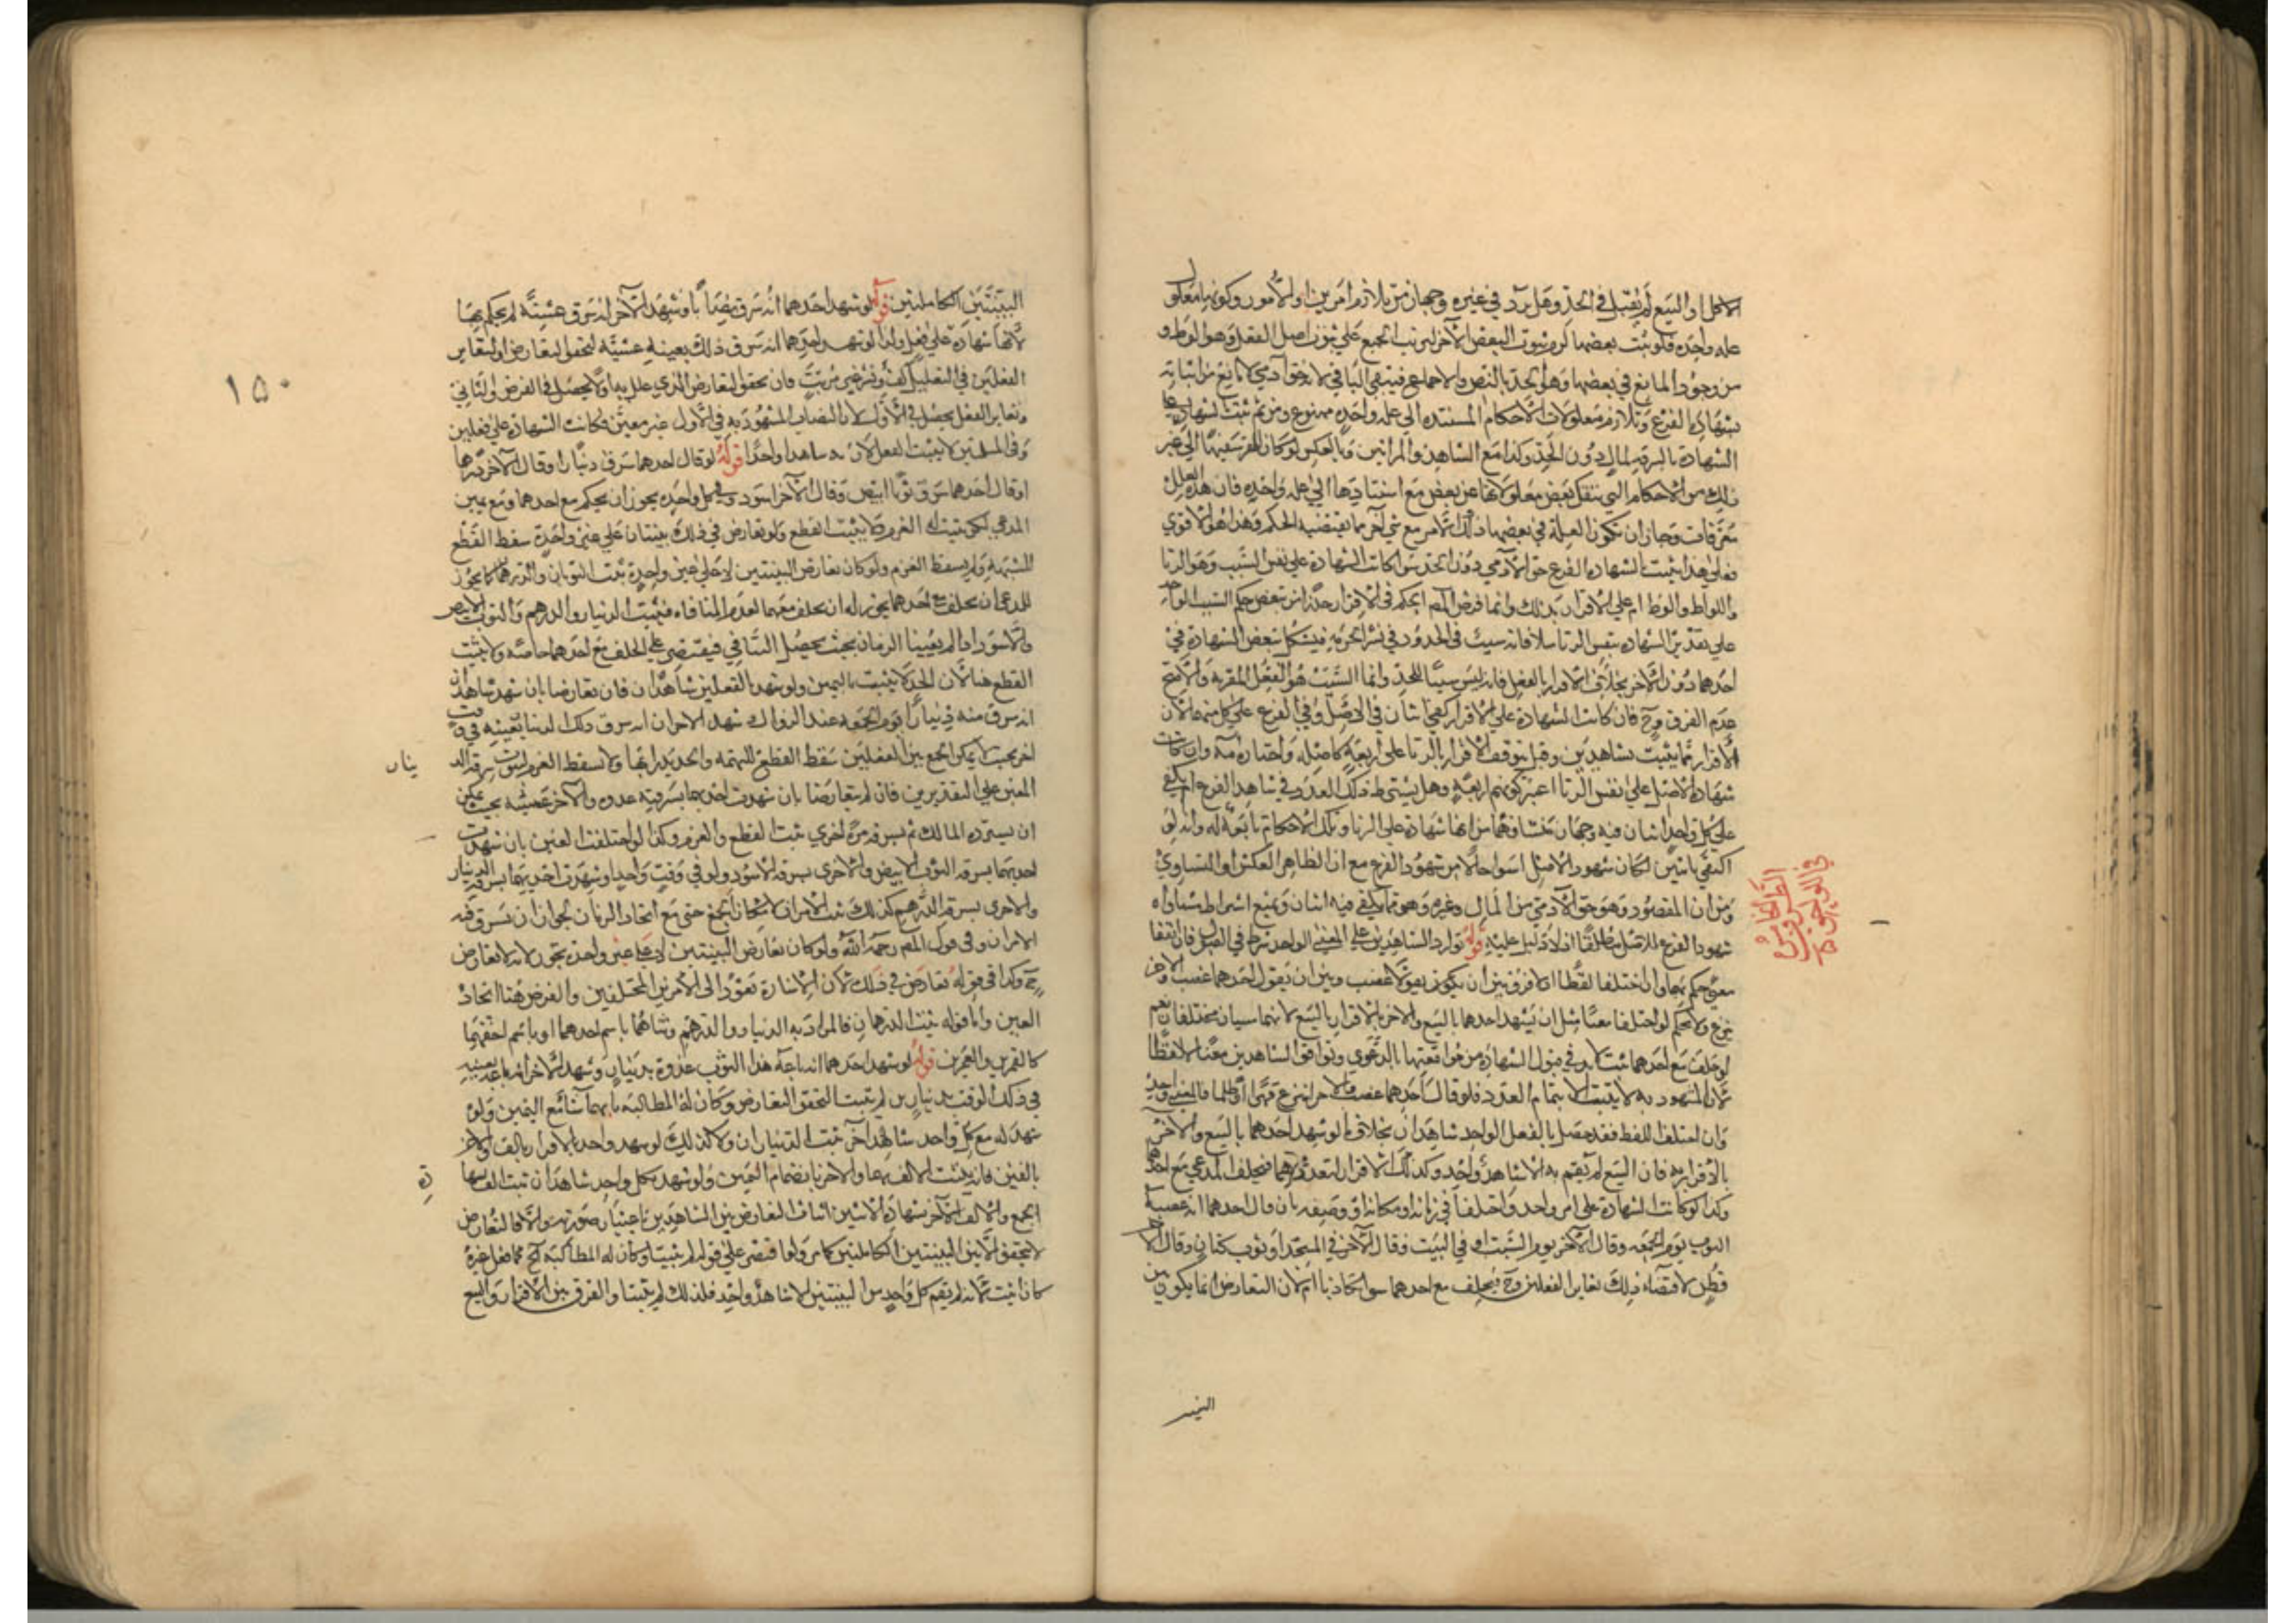 الاكل او البيع لم يقبل في الحد وهل يرد في غيره وجهان من تلازم امرين او الامور وكونها معلول
علة واحدة فلو ثبت بعضها لزم ثبوت البعض الآخر لترتب الجميع على ثبوت اصل الفعل وهو الوطء و
من وجود المانع في بعضها وهو الحد بالنص والاجماع فيبقى الباقي لانه حق آدمي لا مانع من اثباته
بشهادة الفرع وتلازم معلولات الاحكام المستندة الى علة واحدة ممنوع ومن ثم ثبت بشهادة
الشهادة بالسرقة المال دون الحد وكذا مع الشاهد والمراتين وبالعكس لو كان المقر سفيها الى غير
ذلك من الاحكام التي ينفك بعض معلولاتها عن بعض مع استنادها الى علة واحدة فان هذه العلل
معرفات وجاز ان تكون العلة في بعضها ذلك الامر مع شيء آخر مما يقتضيه الحكم وهذا هو الاقوى
فعلى هذا يثبت بشهادة الفرع حق الآدمي دون الحد سوا كانت الشهادة على نفس السبب وهو الزنا
واللواط والوطء ام على الاقرار بذلك وانما فرض المصـ الحكم في الاقرار حذرا من تبعض حكم السبب الواحد
على تقدير الشهادة بنفس الزنا مثلا فانه سبب في الحدود في نشر الحرمة فيشكل تبعض الشهادة في
احدهما دون الآخر بخلاف الاقرار بالفعل فانه ليس سببا للحد وانما السبب هو الفعل المقر به والاصح
عدم الفرق وح فان كانت الشهادة على الاقرار كفى اثنان في الاصل وفي الفرع على كل منهما لان
الاقرار مما يثبت بشاهدين وقيل يتوقف الاقرار بالزنا على اربعة كاصله واختاره مه وان كانت
شهادة الاصل على نفس الزنا اعتبر كونهم اربعة وهل يشترط ذلك العدد في شاهد الفرع ام يكفي
على كل واحد اثنان فيه وجهان منشاؤهما من انها شهادة على الزنا وتلك الاحكام تابعة له وانه لو
اكتفى باثنين لكان شهود الاصل اسوا حالا من شهود الفرع مع ان الظاهر العكس او التساوي
ومن ان المقصود وهو حق الآدمي من المال وغيره وهو مما يكفي فيه اثنان ويمنع اشتراط مساواه
شهود الفرع للاصل مطلقا اذ لا دليل عليه قوله توارد الشاهدين على المعنى الواحد شرط في القبول فان اتفقا
معنى حكم بهما وان اختلفا لفظا اذ لا فرق بين ان يكون يقولا غصب وبين ان يقول احدهما غصب والاخر
انتزع ولا يحكم لو اختلفا معنا مثل ان يشهد احدهما بالبيع والاخر بالاقرار بالبيع لانهما شيئان مختلفان نعم
لو حلف مع احدهما ثبت لا بد في قبول الشهادة من موافقتها الدعوى وتوافق الشاهدين معنا لا لفظا
لان المشهود به لا يثبت الا بتمام العدد فلو قال احدهما غصب والاخر انتزع قهرا او ظلما فالمعنى واحد
وان اختلف اللفظ فقد حصل بالفعل الواحد شاهدان بخلاف ما لو شهد احدهما بالبيع والاخر
بالاقرار به فان البيع لم يقم به الا شاهد واحد وكذلك الاقرار لتعددهما فيحلف المدعي مع احدهما
وكذا لو كانت الشهادة على امر واحد واختلفا في زمانه او مكانه او وصفه بان قال احدهما انه غصبه
الثوب يوم الجمعة وقال الآخر يوم السبت او في البيت وقال الآخر في المسجد او ثوب كتان وقال الاخر
قطن لاقتضاء ذلك تغاير الفعلين وح فيحلف مع احدهما سوا تكاذبا ام لا لان التعارض انما يكون بين
في الواجب
البينتين
البينتين الكاملتين قوله لو شهد احدهما انه سرق نصابا وشهد الآخر انه سرق عشية لم يحكم بها
لانها شهادة على فعل ولو شهد احدهما انه سرق ذلك بعينه عشية لتحقق التعارض او لتغاير
الفعلين في التعليل لف ونشر غير مرتب فان تحقق التعارض الذي علل به اولا يحصل في الفرض الثاني
وتغاير الفعل يحصل في الاول لان النصاب المشهود به في الاول غير معين فكانت الشهادة على فعلين
وفي المسئلتين لا يثبت الفعل لان به شاهدا واحدا قوله لو قال احدهما سرق دينارا وقال الآخر درهما
او قال احدهما سرق ثوبا ابيض وقال الآخر اسود وفي كل واحد يجوز ان يحكم مع احدهما ومع يمين
المدعي لكن يثبت له الغرم ولا يثبت القطع ولو تعارض في ذلك بينتان على عين واحدة سقط القطع
للشبهة ولم يسقط الغرم ولو كان تعارض البينتين لا على عين واحدة ثبت الثوبان والدرهمان كما يجوز
للمدعي ان يحلف مع احدهما يجوز له ان يحلف معهما لعدم المنافاة فيثبت الدينار والدرهم والثوب الابيض
والاسود اذا لم يعينا الزمان بحيث يحصل التنافي فيقتصر على الحلف مع احدهما خاصة ولا يثبت
القطع هنا لان الحد لا يثبت باليمين ولو شهد بالفعلين شاهدان فان تعارضا بان شهد شاهدان
انه سرق منه دينارا يوم الجمعة عند الزوال وشهد الاخران انه سرق ذلك الدينار بعينه في وقت
اخر بحيث لا يمكن الجمع بين الفعلين سقط القطع للتهمة والحد يدرا بها ولا يسقط الغرم لثبوت سرقة الد
ينار
المعين على التقديرين فان لم يتعارضا بان شهدت احديهما بسرقته غدوة والآخر عشية بحيث يمكن
ان يسترده المالك ثم يسرقه مرة اخرى ثبت القطع والغرم وكذا لو اختلفت العين بان شهدت
احديهما بسرقة الثوب الابيض والاخرى بسرقة الاسود ولو في وقت واحد او شهدت احديهما بسرقة الدينار
والاخرى بسرقة الدرهم كذلك ثبت الامران لامكان الجمع حتى مع اتحاد الزمان لجواز ان يسرق فيه
الامران وفي قول المصـ رحمه الله ولو كان تعارض البينتين لا على عين واحدة تجوز لانه لا تعارض
ح وكذا في قوله تعارض في ذلك لان الاشارة تعود الى الامرين المختلفين والفرض هنا اتحاد
العين واما قوله يثبت الدرهمان فالمراد به الدينار والدرهم وثناهما باسم احدهما او باسم اخفهما
كالقمرين والعمرين قوله لو شهد احدهما انه باعه هذا الثوب غدوة بدينار وشهد الآخر انه باعه بعينه
في ذلك الوقت بدينارين لم يثبت لتحقق التعارض وكان له المطالبة بايهما شاء مع اليمين ولو
شهد له مع كل واحد شاهد آخر ثبت الديناران ولا كذلك لو شهد واحد بالاقرار بالف والآخر
بالفين فانه يثبت الالف بهما والاخر بانضمام اليمين ولو شهد بكل واحد شاهدان ثبت الف بشهادة
الجمع والالف الآخر بشهادة الاثنين اثبات التعارض بين الشاهدين باعتبار صورته والا فالتعارض
لا يتحقق الا بين البينتين الكاملتين كما مر ولو اقتصر على قوله لم يثبت وكان له المطالبة الخ كما فعل غيره
كان اثبت لانه لم يقم كل واحد من البينتين الا شاهد واحد فلذلك لم يثبتا والفرق بين الاقرار والبيع
١٥٠